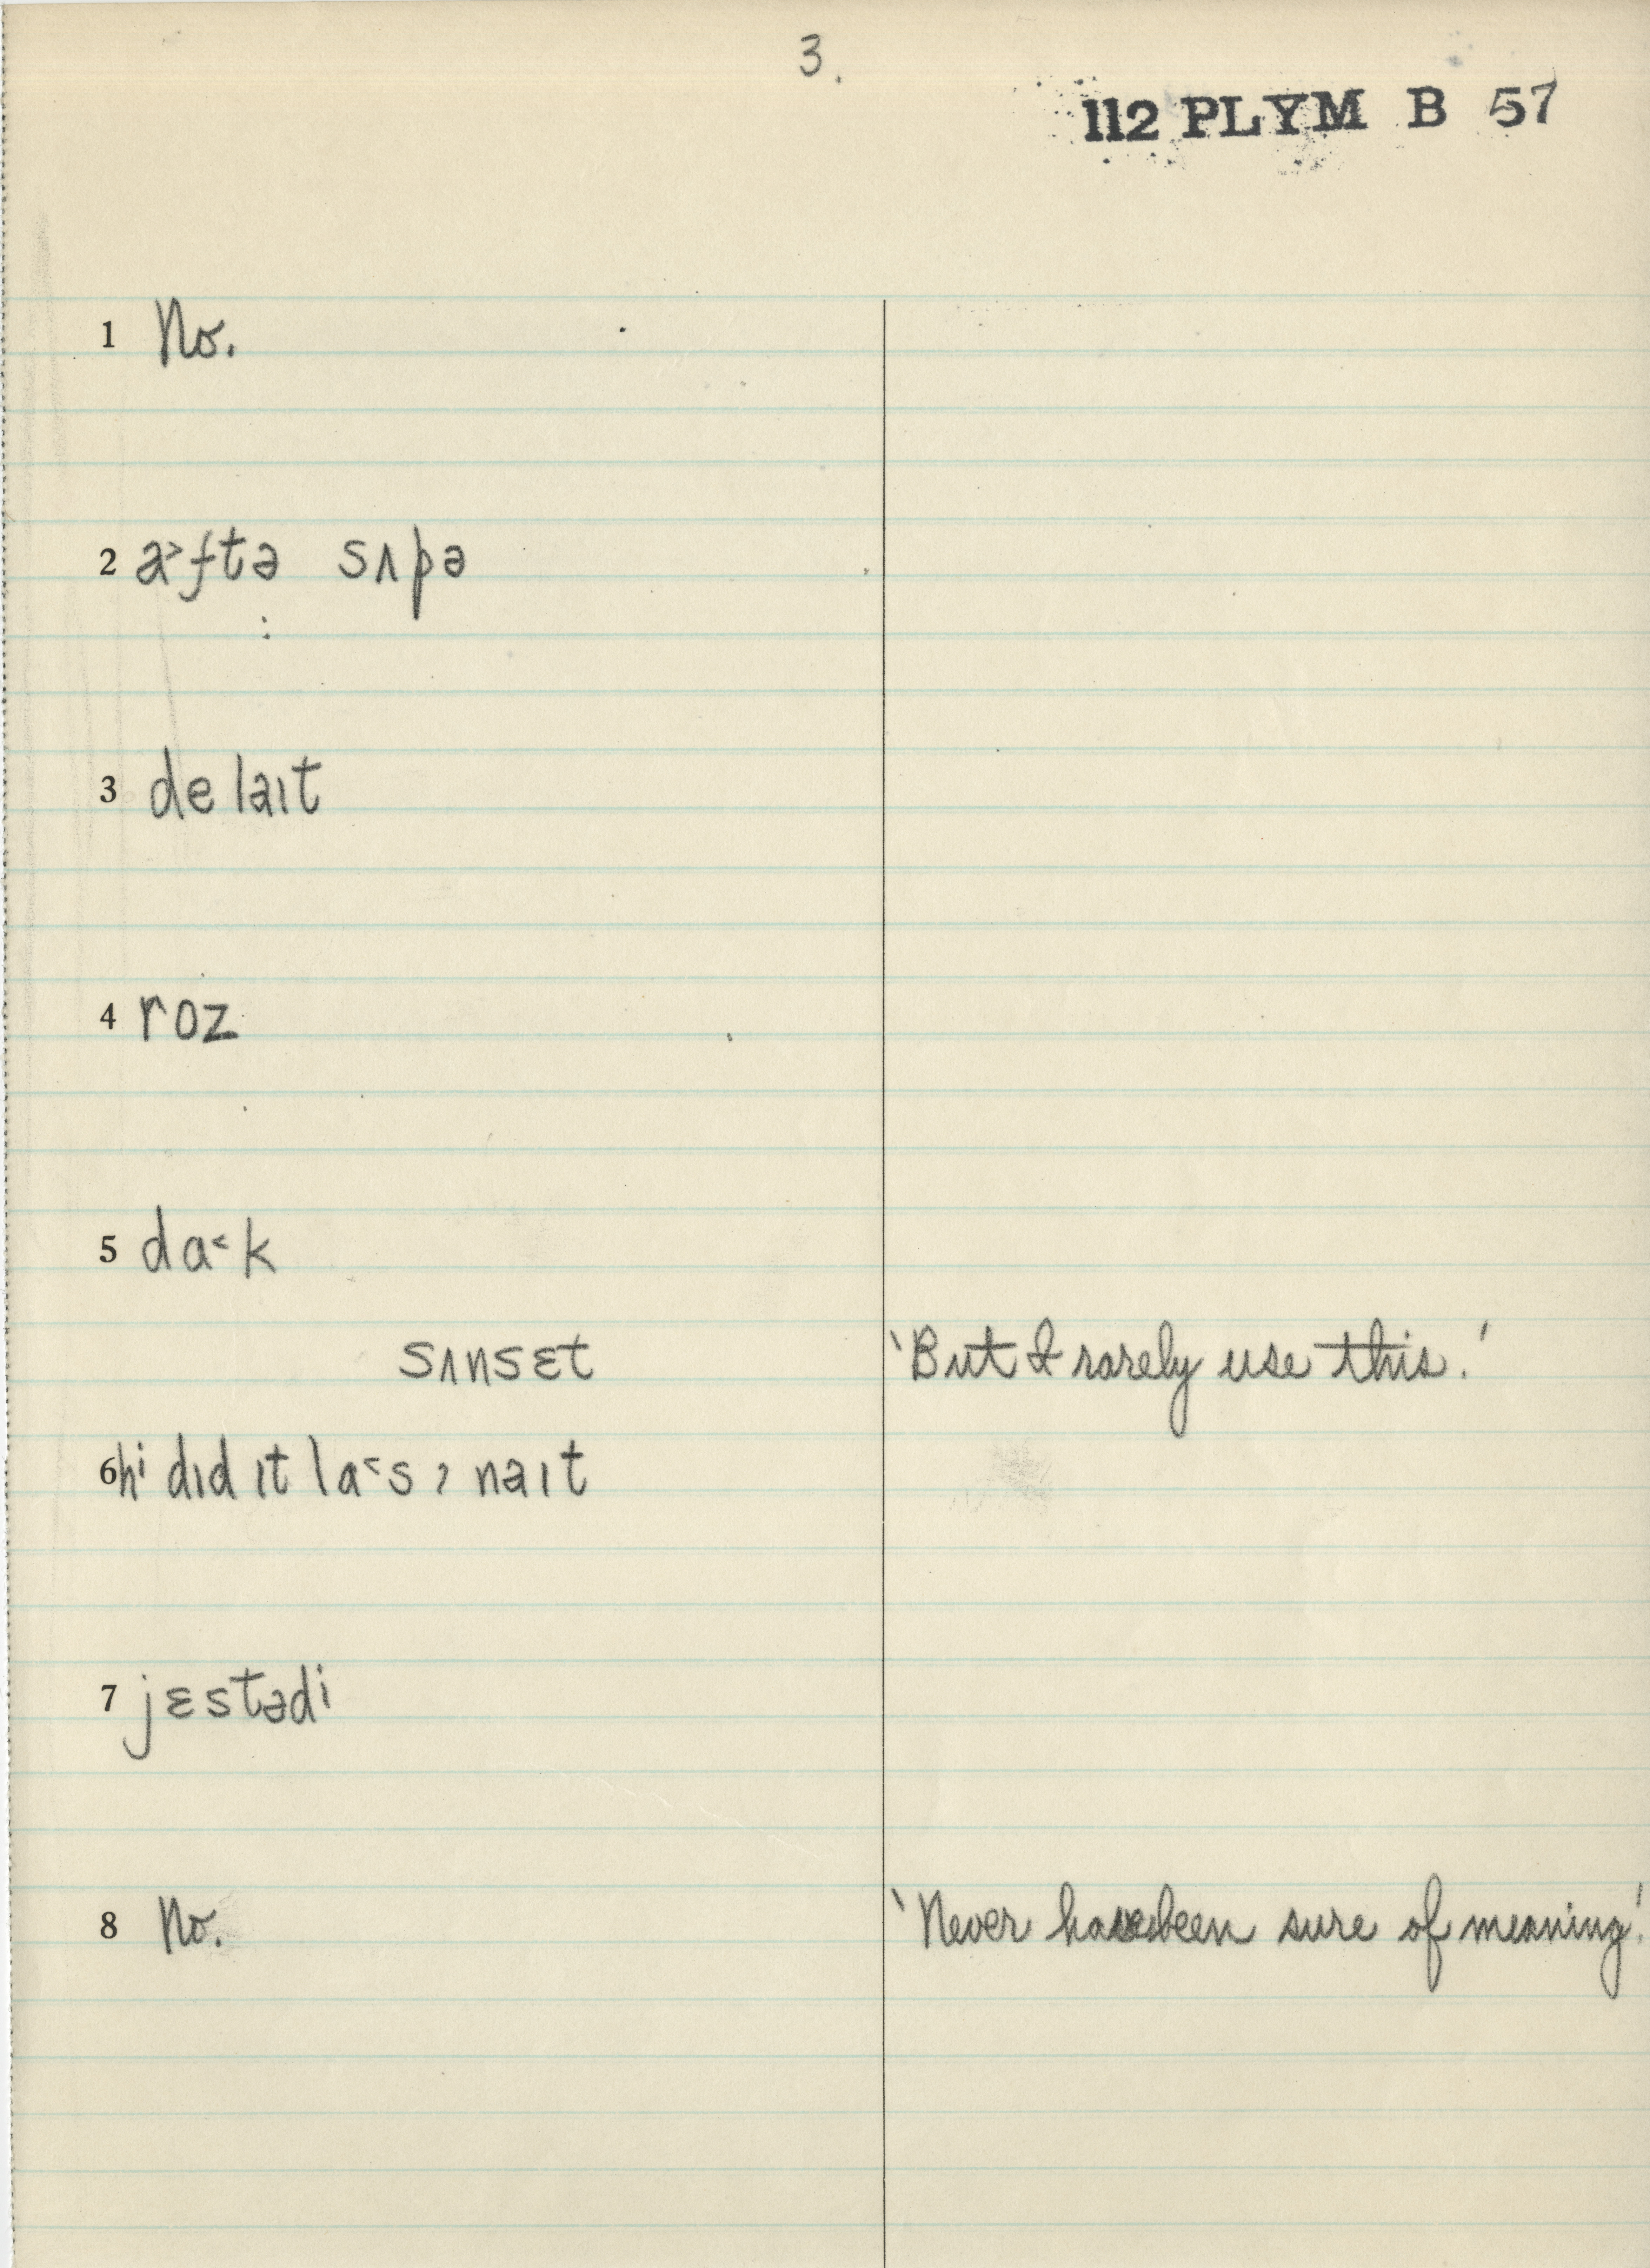 3.
112 PLYM B 57
1 No.
2 a˃ftə sʌpə
3 delaɪt
4 roz
5 da˂k
sʌnsɛt 'But I rarely use this.'
6 hi dɪd ɪt la˂s, naɪt
7 jɛstədi
8 No. 'Never have been sure of meaning.'